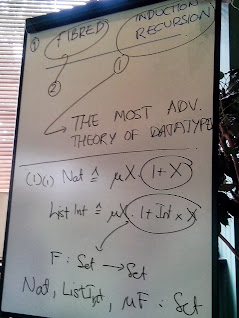 ① FIBRED INDUCTION
RECURSION
② ①
→ THE MOST ADV.
THEORY OF DATATYPE
(1)(i) Nat ≙ μX. 1 + X
List Int ≙ μX. 1 + Int × X
F : Set → Set
Nat, List Int, μF : Set